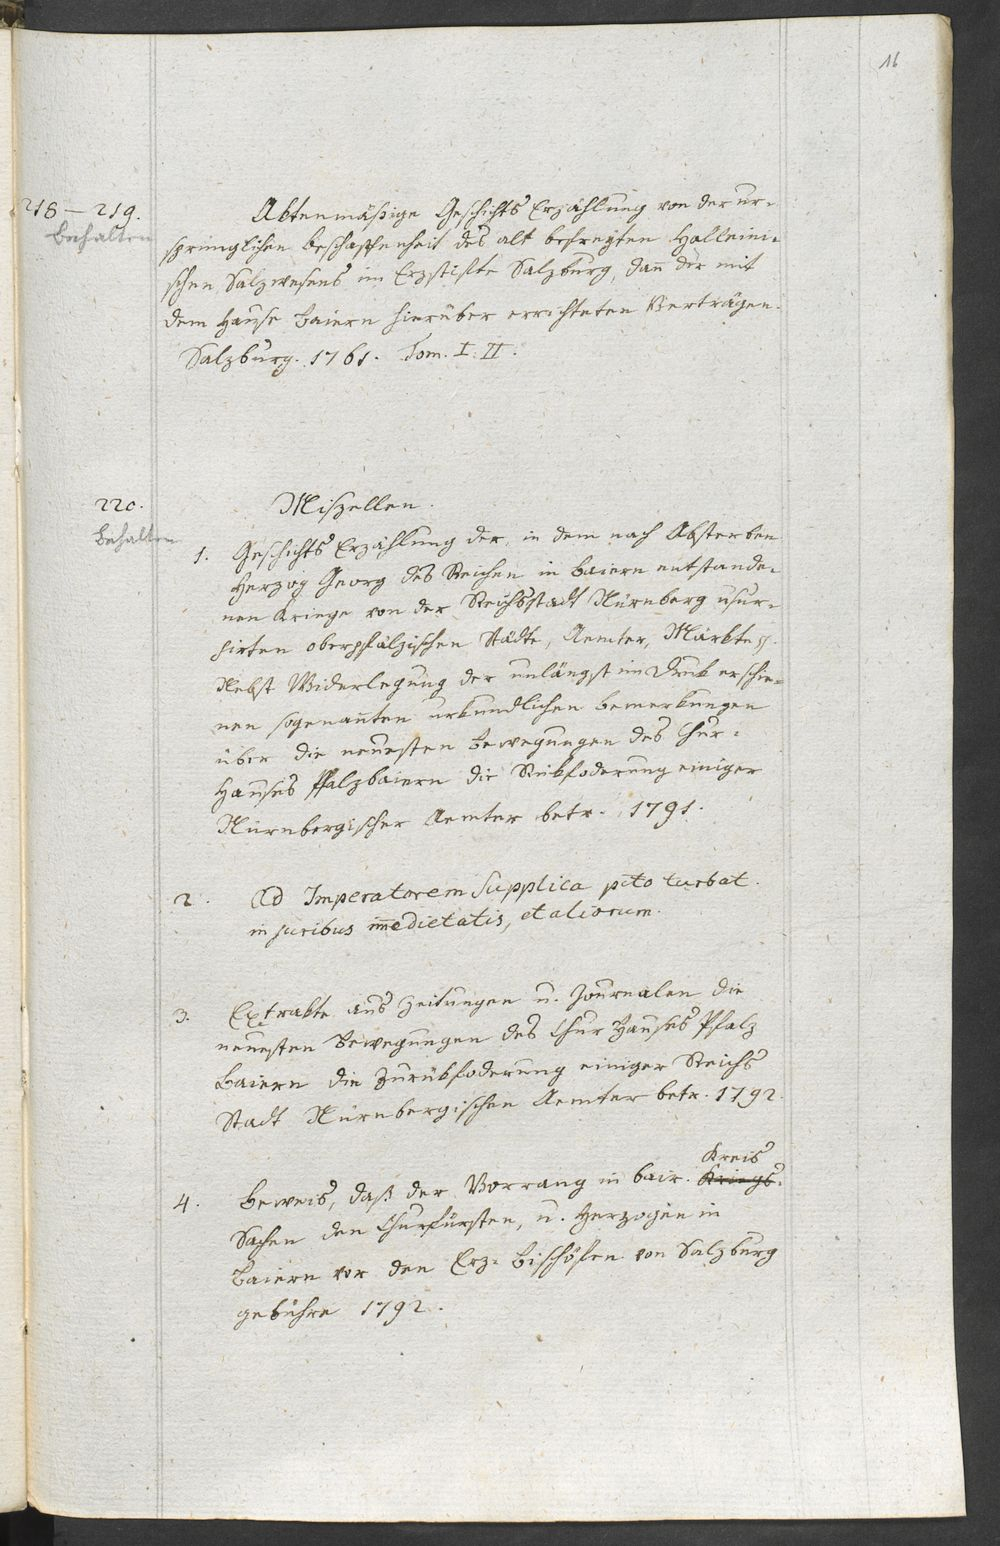 16
218 – 219.
behalten
Aktenmäßige Geschichts Erzählung von der ur-
springlichen Beschaffenheit des alt befreyten Halleini-
schen Salzwesens im Erzstifte Salzburg, dan̄ der mit
dem Hause Baiern hierüber errichteten Verträgen.
Salzburg. 1761. Tom. I. II.
220.
behalten
Miszellen.
1. Geschichts Erzählung der, in dem nach Absterben
Herzog Georg des Reichen in Baiern entstande-
nen Kriege von der Reichsstadt Nürnberg usur-
pirten oberpfälzischen Städte, Aemter, Märkte
Nebst Widerlegung der unlängst im Druk erschie-
nen sogenan̄ten urkundlichen Bemerkungen
über die neuesten Bewegungen des Chur-
Hauses Pfalzbaiern die Rükfoderung einiger
Nürnbergischer Aemter betr. 1791.
2. Ad Imperatorem Supplica pcto turbat.
in juribus im̄edietatis, et aliorum.
3. Extrakte aus Zeitungen u. Journalen die
neuesten Bewegungen des Chur Hauses Pfalz
Baiern die Zurükfoderung einiger Reichs
Stadt Nürnbergischen Aemter betr. 1792.
Kreis
4. Beweis, daß der Vorrang in bair. Kriegs-
Sachen den Churfürsten, u. Herzogen in
Baiern vor den Erz-Bischöfen von Salzburg
gebühre 1792.